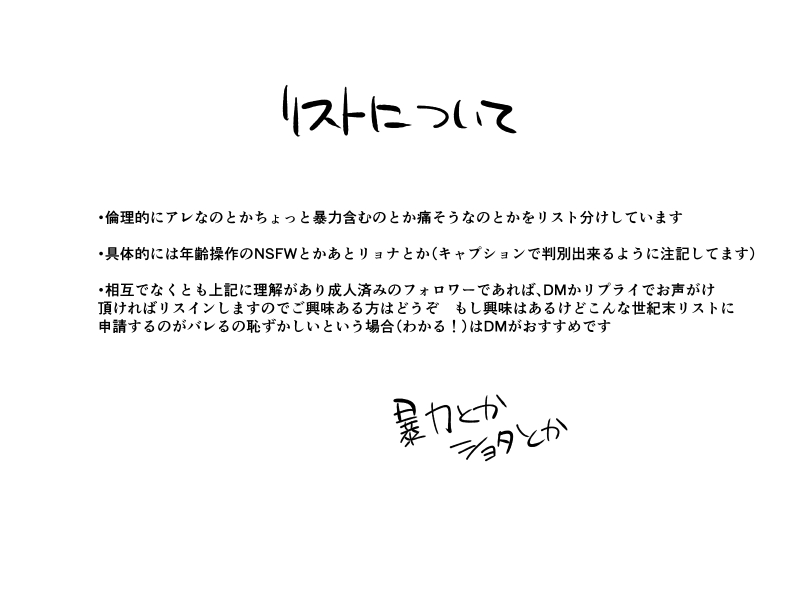 リストについて
・倫理的にアレなのとかちょっと暴力含むのとか痛そうなのとかをリスト分けしています
・具体的には年齢操作のNSFWとかあとリョナとか（キャプションで判別出来るように注記してます）
・相互でなくとも上記に理解があり成人済みのフォロワーであれば、DMかリプライでお声がけ
頂ければリスインしますのでご興味ある方はどうぞ　もし興味はあるけどこんな世紀末リストに
申請するのがバレるの恥ずかしいという場合（わかる！）はDMがおすすめです
暴力とか
ショタとか